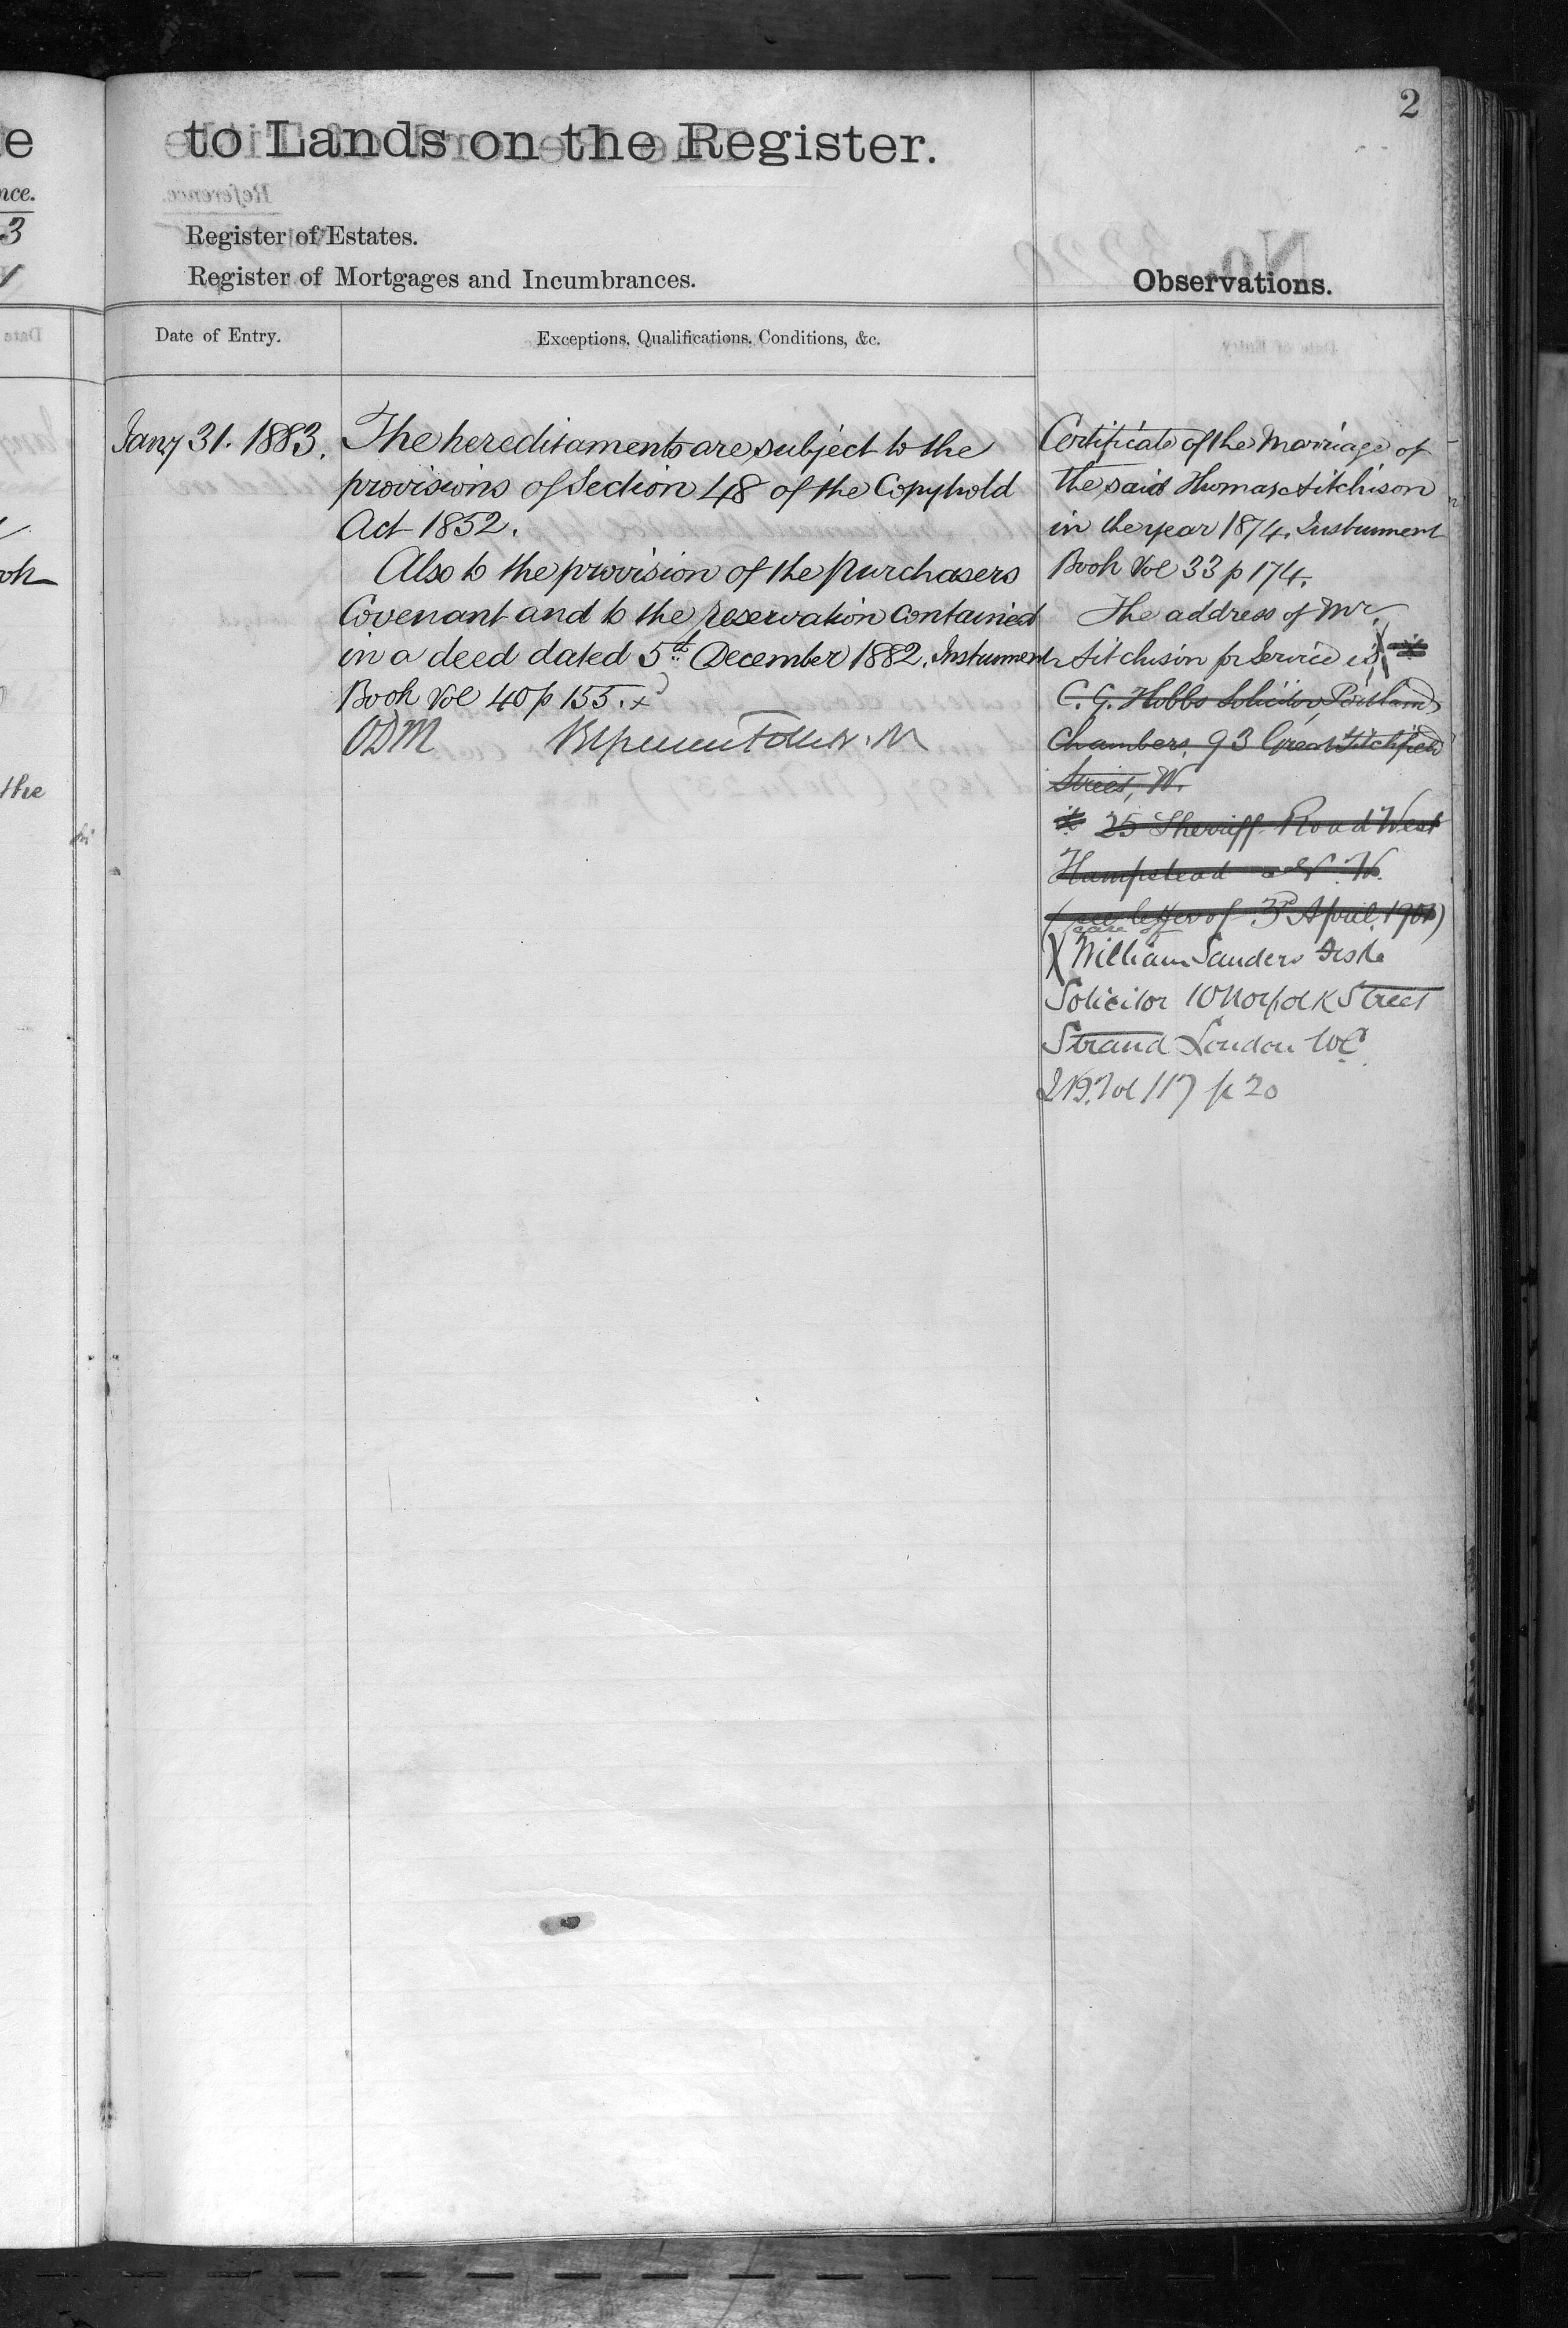 2
to Lands on the Register.
Register of Estates.
Register of Mortgages and Incumbrances.
Observations.
Date of Entry.
Exceptions, Qualifications, Conditions, &c.
Jany 31. 1883.
The hereditaments are subject to the
provisions of Section 48 of the Copyhold
Act 1852.
Also to the provision of the Purchasers
Covenant and to the reservation contained
in a deed dated 5th December 1882. Instrument
Book Vol 40 p 155. x
ODM
Certificate of the Marriage of
the said Thomas Aitchison
in the year 1874. Instrument
Book Vol 33 p 174.
The address of Mr.
Aitchison for Service is
C. G. Hobbs Solicitor, Portland
Chambers, 93 Great Titchfield
Street, W.
25 Sherriff Road West
Hampstead N. W.
(see letter of 3rd April 1901)
care of
X William Sanders Fiske
Solicitor 10 Norfolk Street
Strand London WC
Vol 117 p 20
e
nce.
3
the